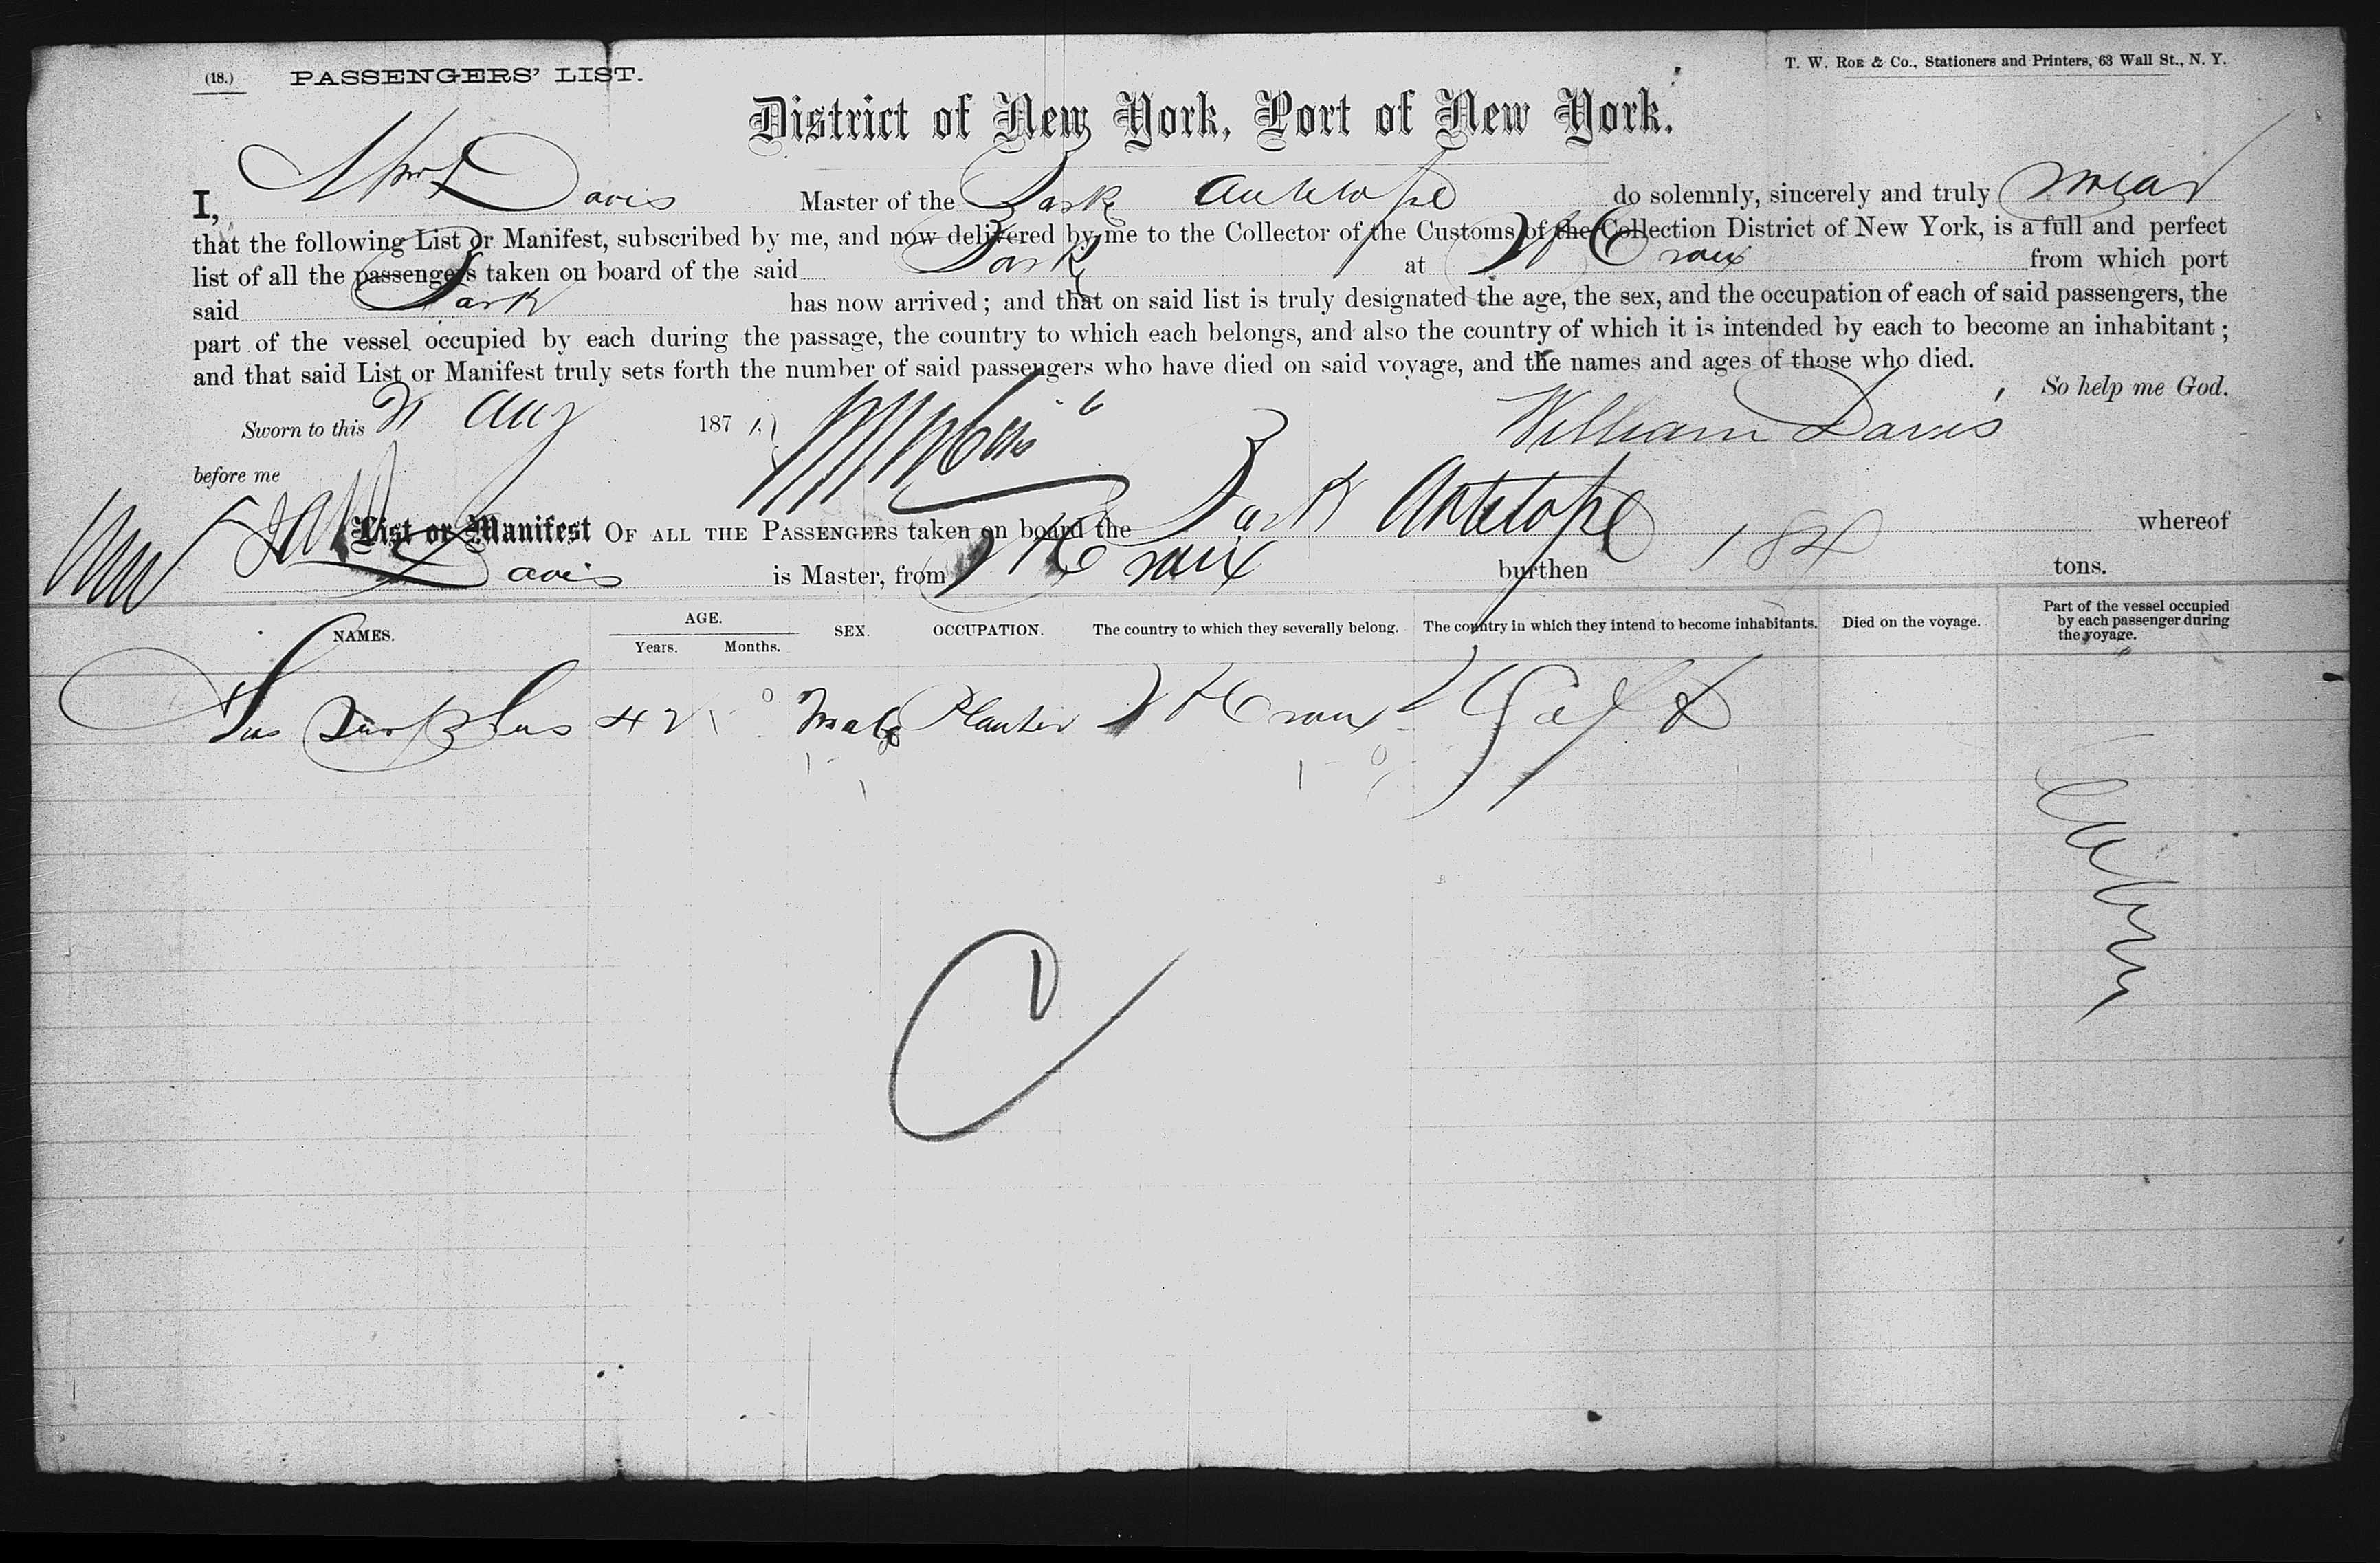 (18.) PASSENGERS' LIST.
T. W. ROE & Co., Stationers and Printers, 63 Wall St., N. Y.
District of New York, Port of New York.
I, Wm Davis Master of the Bark Antelope do solemnly, sincerely and truly swear
that the following List or Manifest, subscribed by me, and now delivered by me to the Collector of the Customs of the Collection District of New York, is a full and perfect
list of all the passengers taken on board of the said Bark at St Croix from which port
said Bark has now arrived; and that on said list is truly designated the age, the sex, and the occupation of each of said passengers, the
part of the vessel occupied by each during the passage, the country to which each belongs, and also the country of which it is intended by each to become an inhabitant;
and that said List or Manifest truly sets forth the number of said passengers who have died on said voyage, and the names and ages of those who died.
So help me God.
Sworn to this 21 Aug 187
William Davis
before me
List or Manifest OF ALL THE PASSENGERS taken on board the Bark Antelope whereof
Davis is Master, from St Croix burthen 184 tons.
NAMES. AGE. Years. Months. SEX. OCCUPATION. The country to which they severally belong. The country in which they intend to become inhabitants. Died on the voyage. Part of the vessel occupied by each passenger during the voyage.
42 Male Planter St Croix
Cabin
C